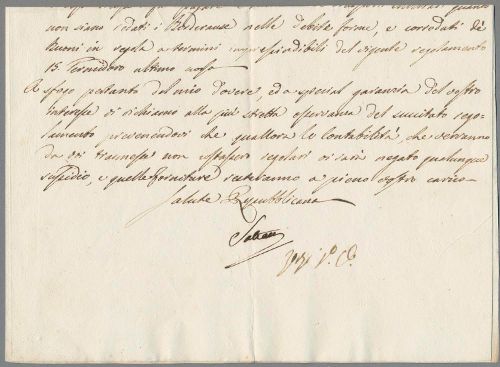 non siano stati i Borderaux nelle debite forme, e corredati dè
Buoni in regola a termini imprescindibili del vigente regolamento
15. Termidoro ultimo
A sfogo pertanto del mio dovere, ed a special garanzia del vostro
interesse vi richiamo alla più stretta osservanza del succitato rego-
lamento prevenendovi che quallora le Contabilità, che verranno
da voi trasmesse non fossero regolari vi sarà negato qualunque
sussidio, e quelle forniture resteranno a pieno vostro carico
Salute Repubblicana